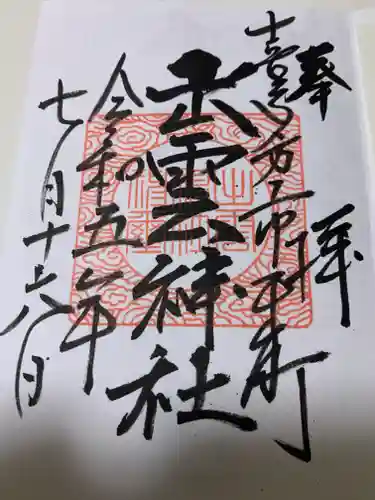 奉拝
喜多方市本町
出雲神社
令和五年
七月十六日